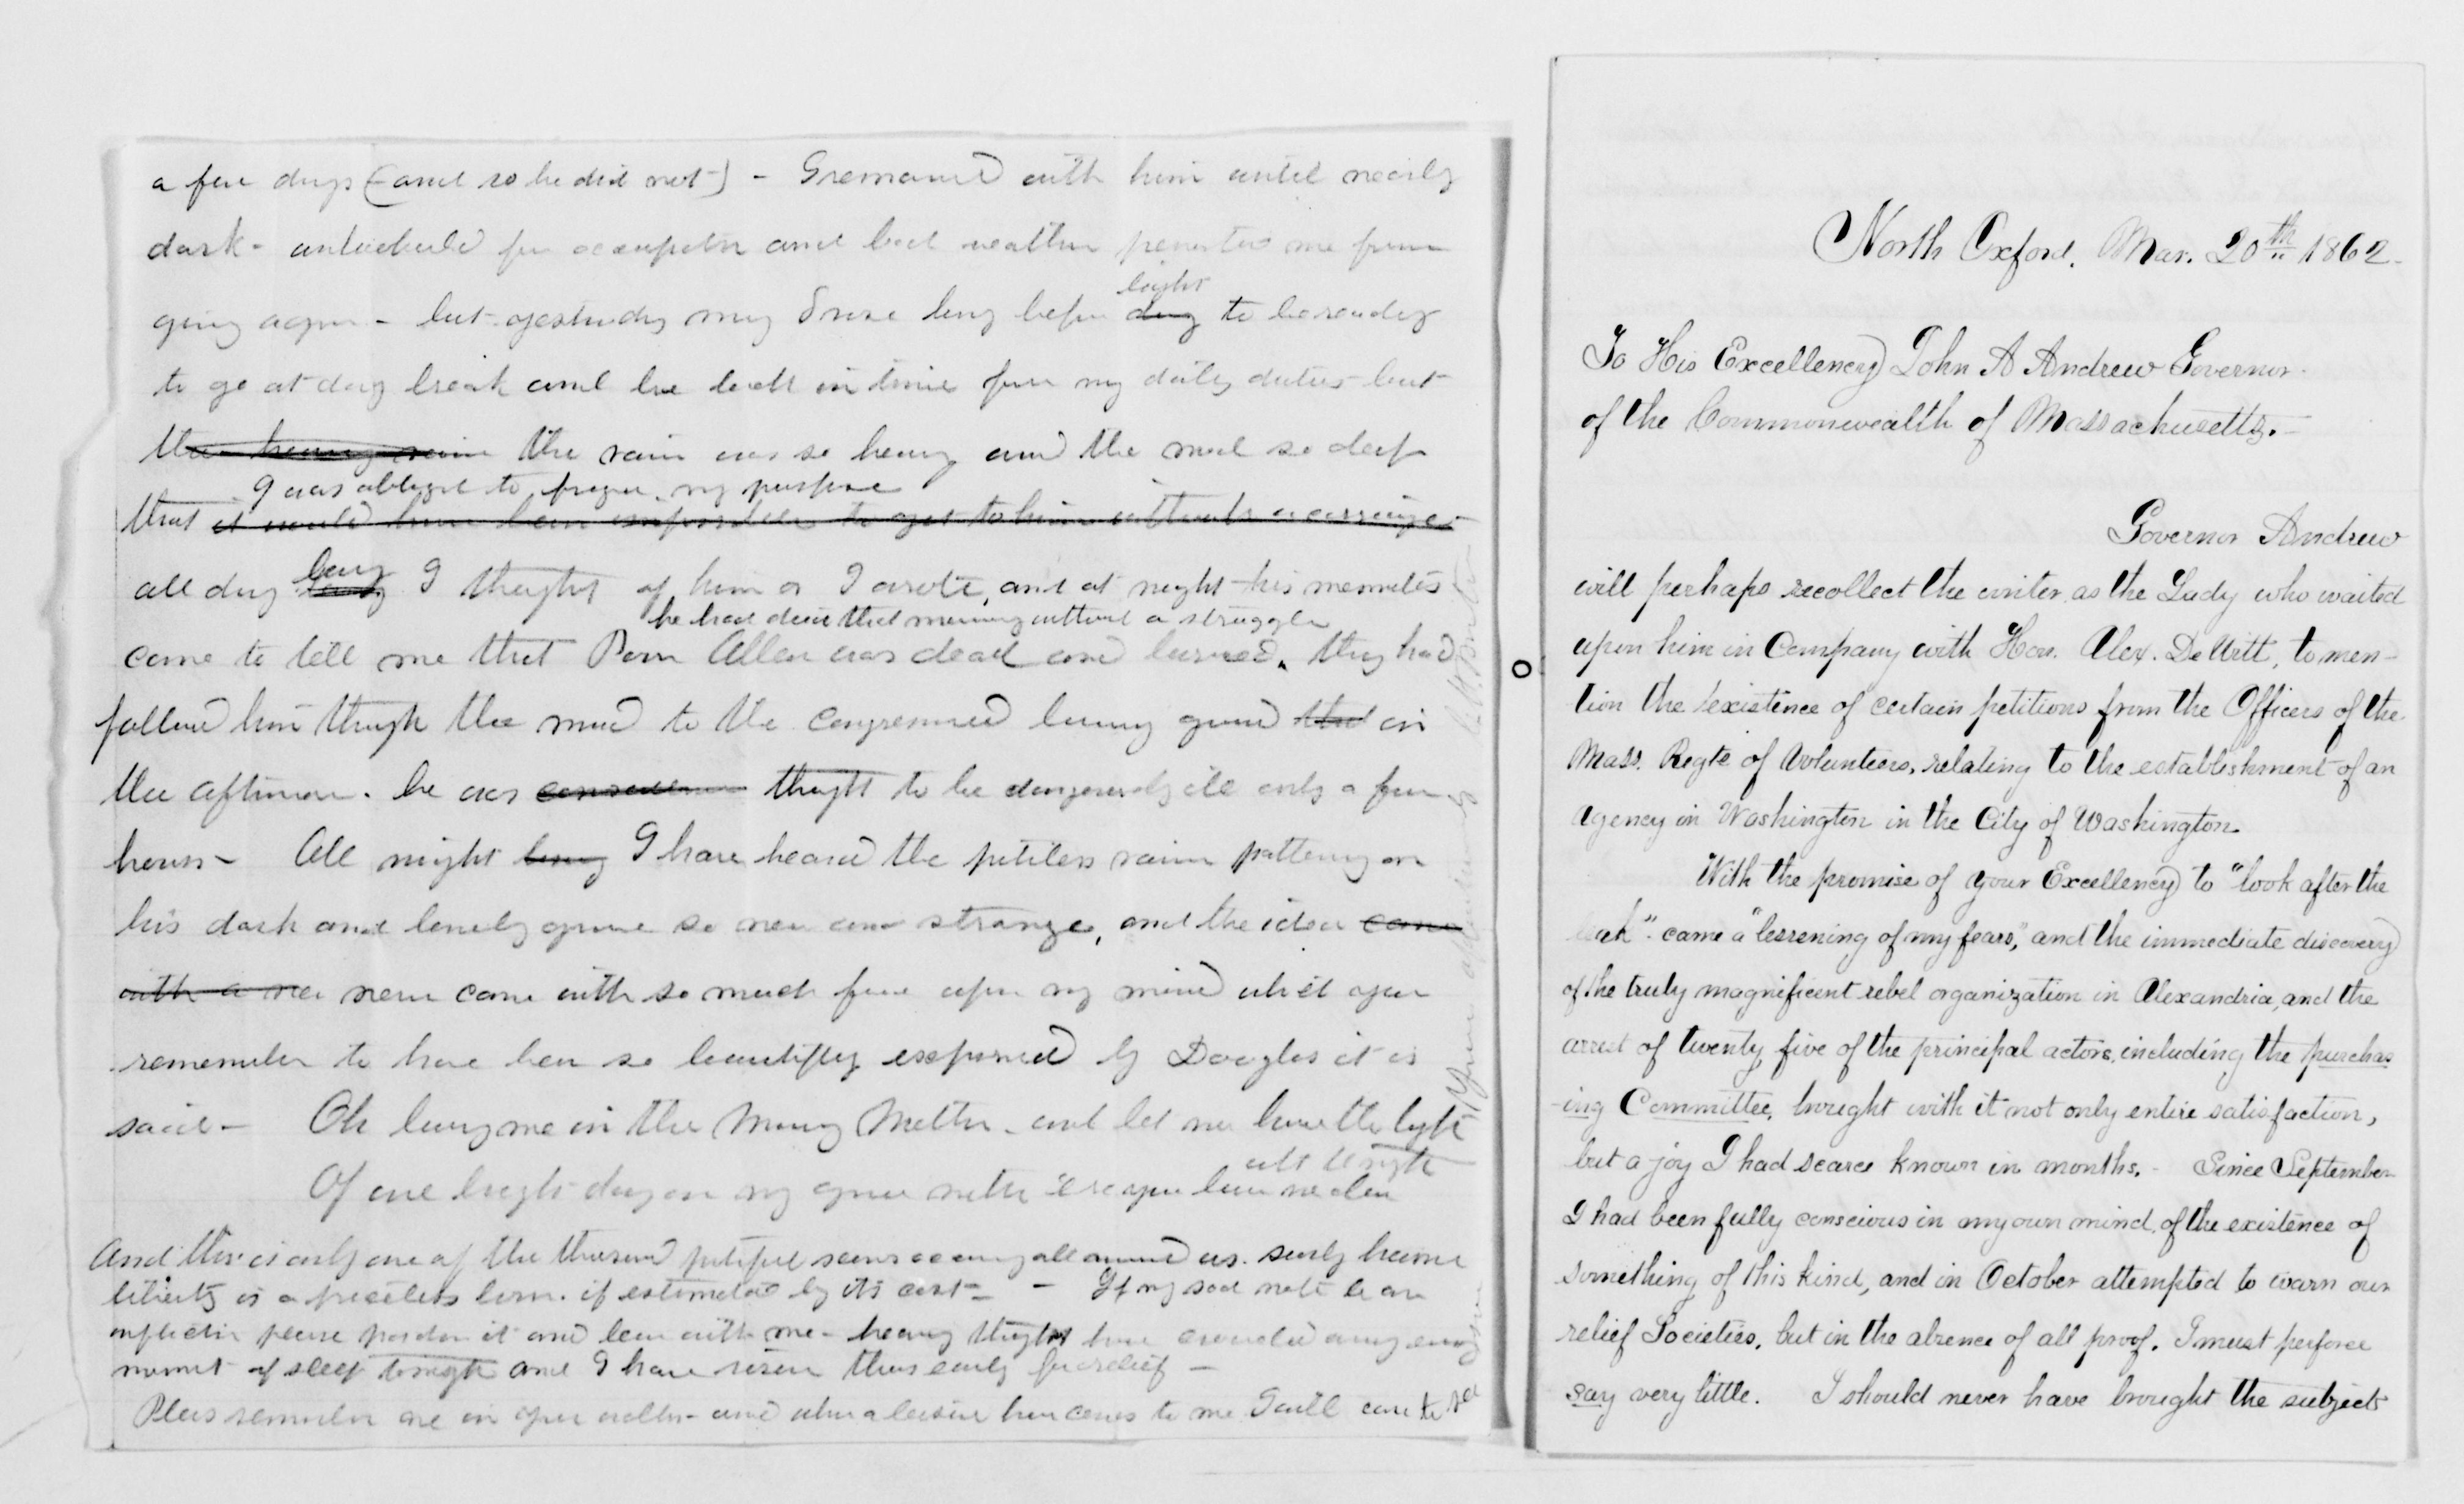 a few days (and so he did not) - I remained with him until nearly
dark - unlooked for occupation and bad weather prevented me from
going again - but yesterday morng I rose long before light day to be ready
to go at day break and be back in time for my daily duties but
the heavy rain the rain was so heavy and the mud so deep
I was obliged to my purpose
that it would have been impossible to get to him without a carriage
all day long I thought of him as I wrote, and at night his messmates
he had died that morning without a struggle
came to tell me that Poor Allen was dead and buried. they had
followed him through the mud to the Congressional burying ground that in
the afternoon. he was thought to be dangerously ill only a few
hours - All night long I have heard the pitiless rain pattering on
his dark and lonely grave so new and strange, and the idea came
with a new never came with so much force upon my mind which you
remember to have been so beautifully expressed by Douglas it is
said - Oh bury me in the Morng Mother - and let me have the light
Of one bright day on my grave mother ere you leave me alone
with the night
And this is only one of the thousand pitiful scenes occuring all around us. surely human
liberty is a priceless boon. if estimated by its cost - - If my sad note be an
infliction please pardon it and bear with me - heavy thoughts have crowded away every
moment of sleep tonight and I have risen thus early for relief -
Pleas remember me in your and when a leisure hour comes to me I will come to see
North Oxford, Mar. 20th 1862.
To His Excellency John A Andrew Governor
of the Commonwealth of Massachusetts.-
Governor Andrew
will perhaps recollect the writer as the Lady who waited
upon him in Company with Hon. Alex. De Witt, to men-
tion the existence of certain petitions from the Officers of the
Mass. Regts of Volunteers, relating to the establishment of an
agency in Washington in the City of Washington.
With the promise of your Excellency to "look after the
leak" came a "lessening of my fears," and the immediate discovery
of the truly magnificent rebel organization in Alexandria, and the
arrest of twenty five of the principal actors, including the purchas
-ing Committee, brought with it not only entire satisfaction,
but a joy I had scarce known in months. - Since September
I had been fully conscious in my own mind of the existence of
something of this kind, and in October attempted to warn our
relief Societies, but in the absence of all proof, I must perforce
say very little. I should never have brought the subject